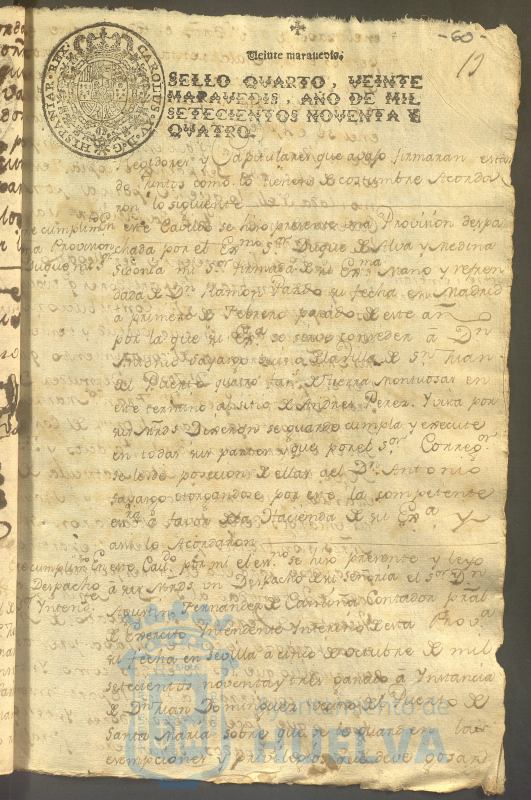 -60-
Veinte maravedis.
SELLO QVARTO, VEINTE
MARAVEDIS, AÑO DE MIL
SETECIENTOS NOVENTA Y
QVATRO.
CAROLUS IV D G HISPANIAR REX
Regidores y Capitulares que avajo firmaran estan
de Juntos como lo tienen de costumbre Acorda
ron lo siguiente
En este Cavildo se hizo presente una Provision despa
chada por el Exmo Sor Duque de Alva y Medina
Sidonia mi Sr firmada de su Exma Mano y refren
dada de Dn Ramon su fecha en Madrid
a primero de Febrero pasado de este año
por la que su Exa se sirve conceder à Dn
Antonio vecino de la Villa de Sn Juan
del Puerto quatro fans de tierra montuosas en
este termino al sitio de Andres Perez. Y vista por
sus Mrds Dixeron se guarde cumpla y execute
en todas sus partes y que por el Sor Corregor
se le de posesion de ellas al Dn Antonio
otorgandose por este la competente
à favor de la Hacienda de su Exa Y
asi lo Acordaron
En este Cavdo por mi el esno se hizo presente y leyo
à sus Mrds un Despacho de su señoria el Sor Dn
Agustin Fernandez Contador pral
de exercito Yntendente Ynterino de esta Prova
su fecha en Sevilla à cinco de Octubre de mil
setecientos noventa y tres ganado à Ynstancia
de Dn Juan Dominguez vezino del Puerto de
Santa Maria sobre que se le guarden las
exempciones y privilegios que deve gosar
cumplimto
Provision
Duque mi Sr
cumplimto
Despacho
Sr Yntende
Ayuntamiento de
HUELVA